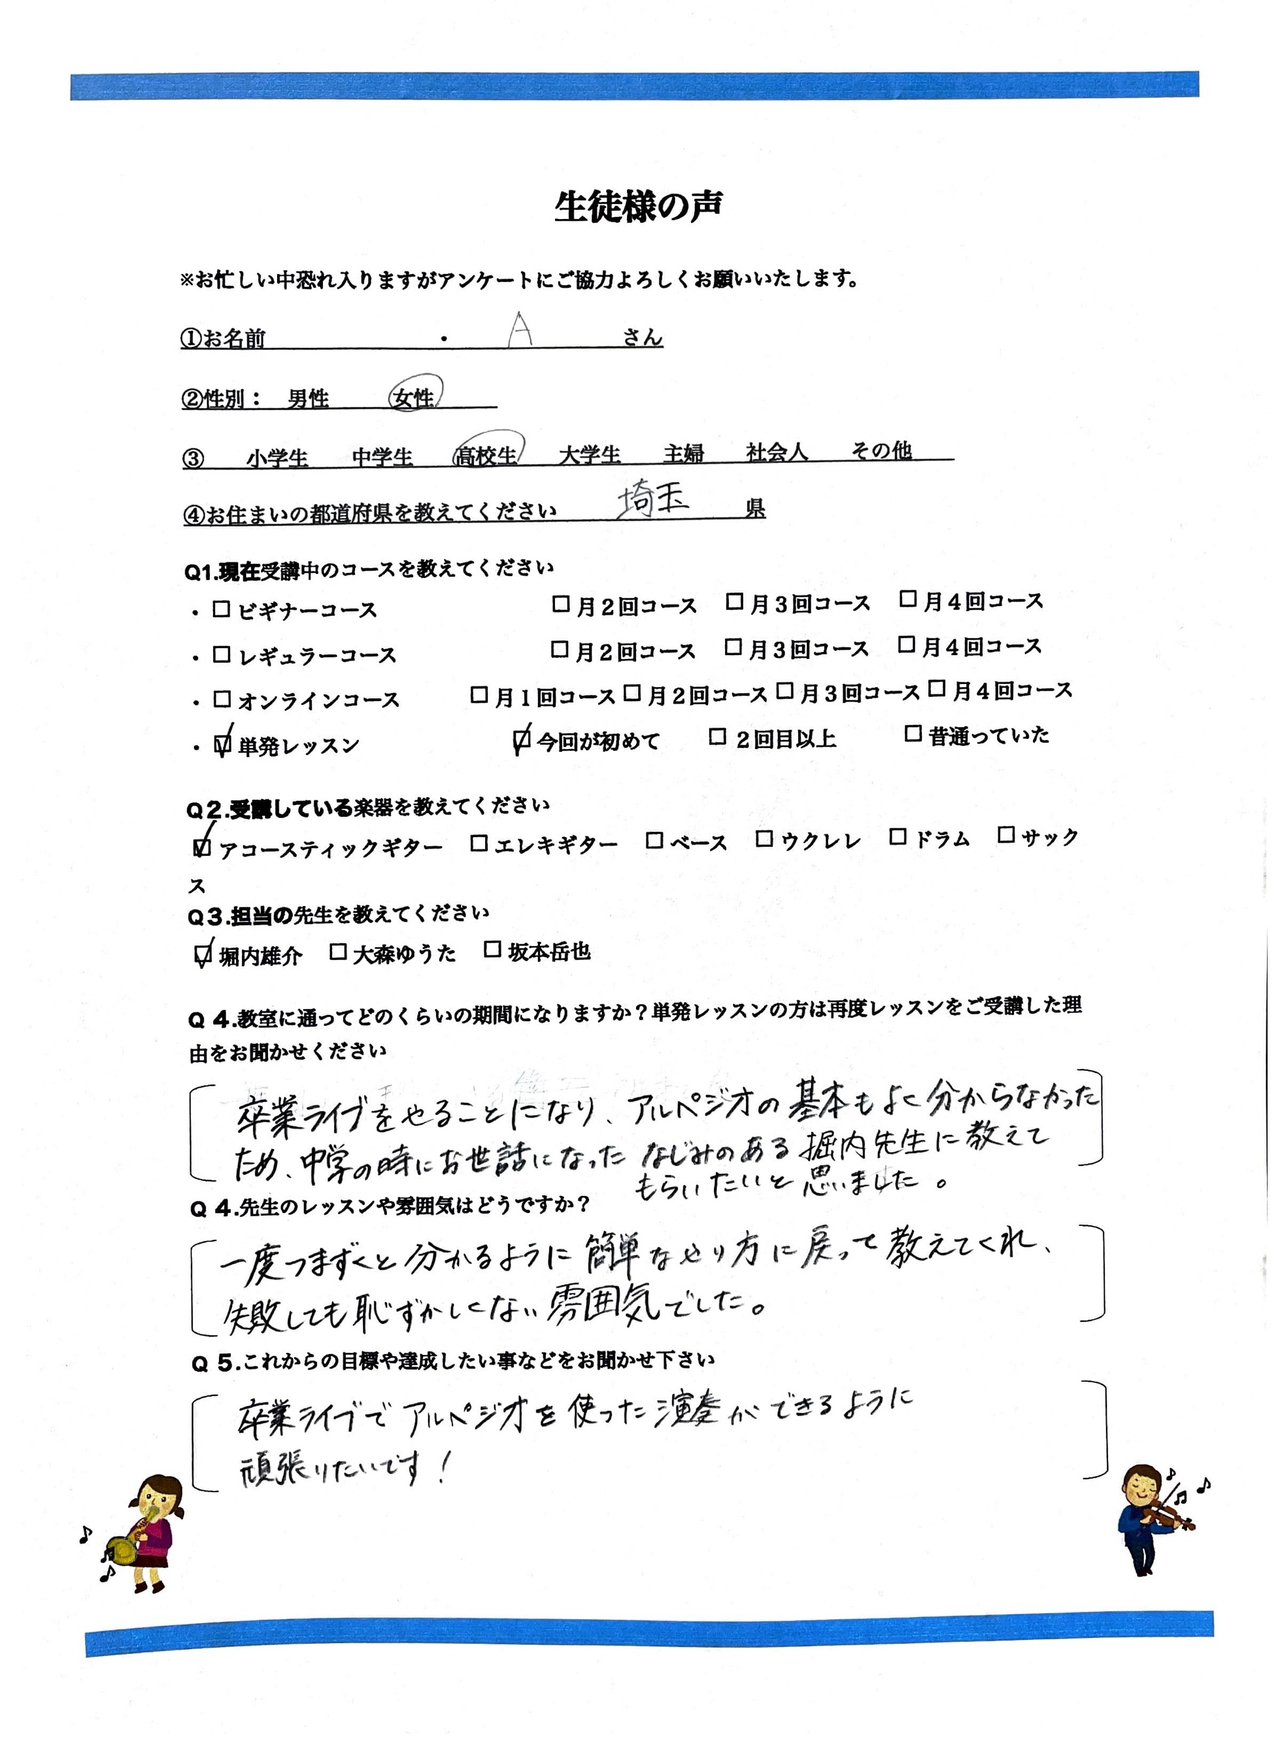 生徒様の声
※お忙しい中恐れ入りますがアンケートにご協力よろしくお願いいたします。
①お名前 ・ A さん
②性別： 男性 女性
③ 小学生 中学生 高校生 大学生 主婦 社会人 その他
④お住まいの都道府県を教えてください 埼玉 県
Q1.現在受講中のコースを教えてください
・□ビギナーコース □月２回コース □月３回コース □月４回コース
・□レギュラーコース □月２回コース □月３回コース □月４回コース
・□オンラインコース □月１回コース□月２回コース□月３回コース□月４回コース
・☑単発レッスン ☑今回が初めて □２回目以上 □昔通っていた
Q２.受講している楽器を教えてください
☑アコースティックギター □エレキギター □ベース □ウクレレ □ドラム □サック
ス
Q３.担当の先生を教えてください
☑堀内雄介 □大森ゆうた □坂本岳也
Q ４.教室に通ってどのくらいの期間になりますか？単発レッスンの方は再度レッスンをご受講した理
由をお聞かせください
卒業ライブをやることになり、アルペジオの基本もよく分からなかった
ため、中学の時にお世話になった なじみのある 堀内先生に教えて
もらいたいと思いました。
Q ４.先生のレッスンや雰囲気はどうですか？
一度つまずくと分かるように簡単なやり方に戻って教えてくれ、
失敗しても恥ずかしくない雰囲気でした。
Q ５.これからの目標や達成したい事などをお聞かせ下さい
卒業ライブでアルペジオを使った演奏ができるように
頑張りたいです！